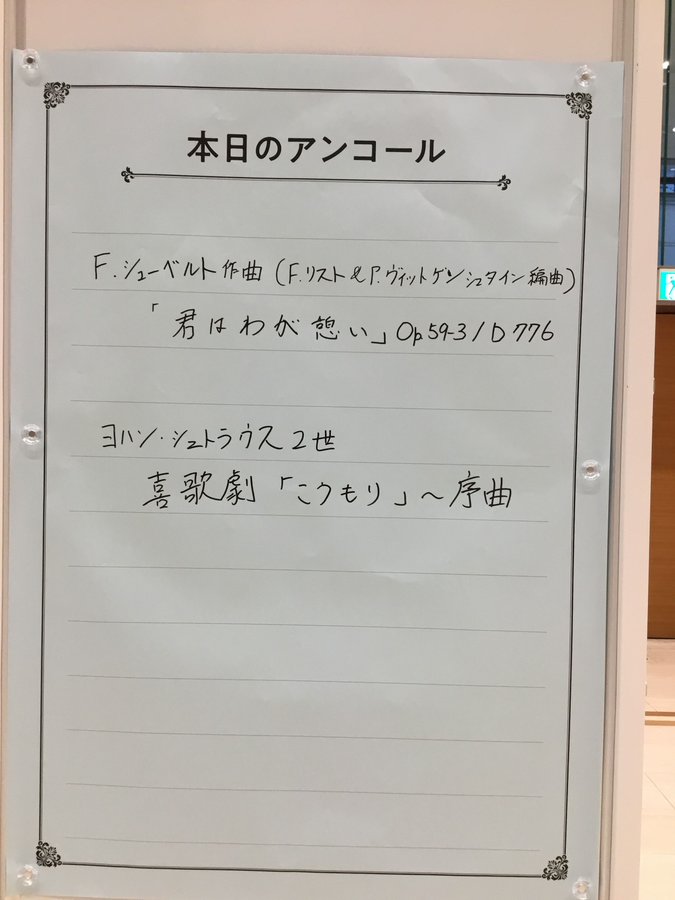 本日のアンコール
F.シューベルト作曲(F.リスト&P.ヴィットゲンシュタイン編曲)
「君はわが憩い」Op.59-3/D776
ヨハン・シュトラウス2世
喜歌劇「こうもり」～序曲